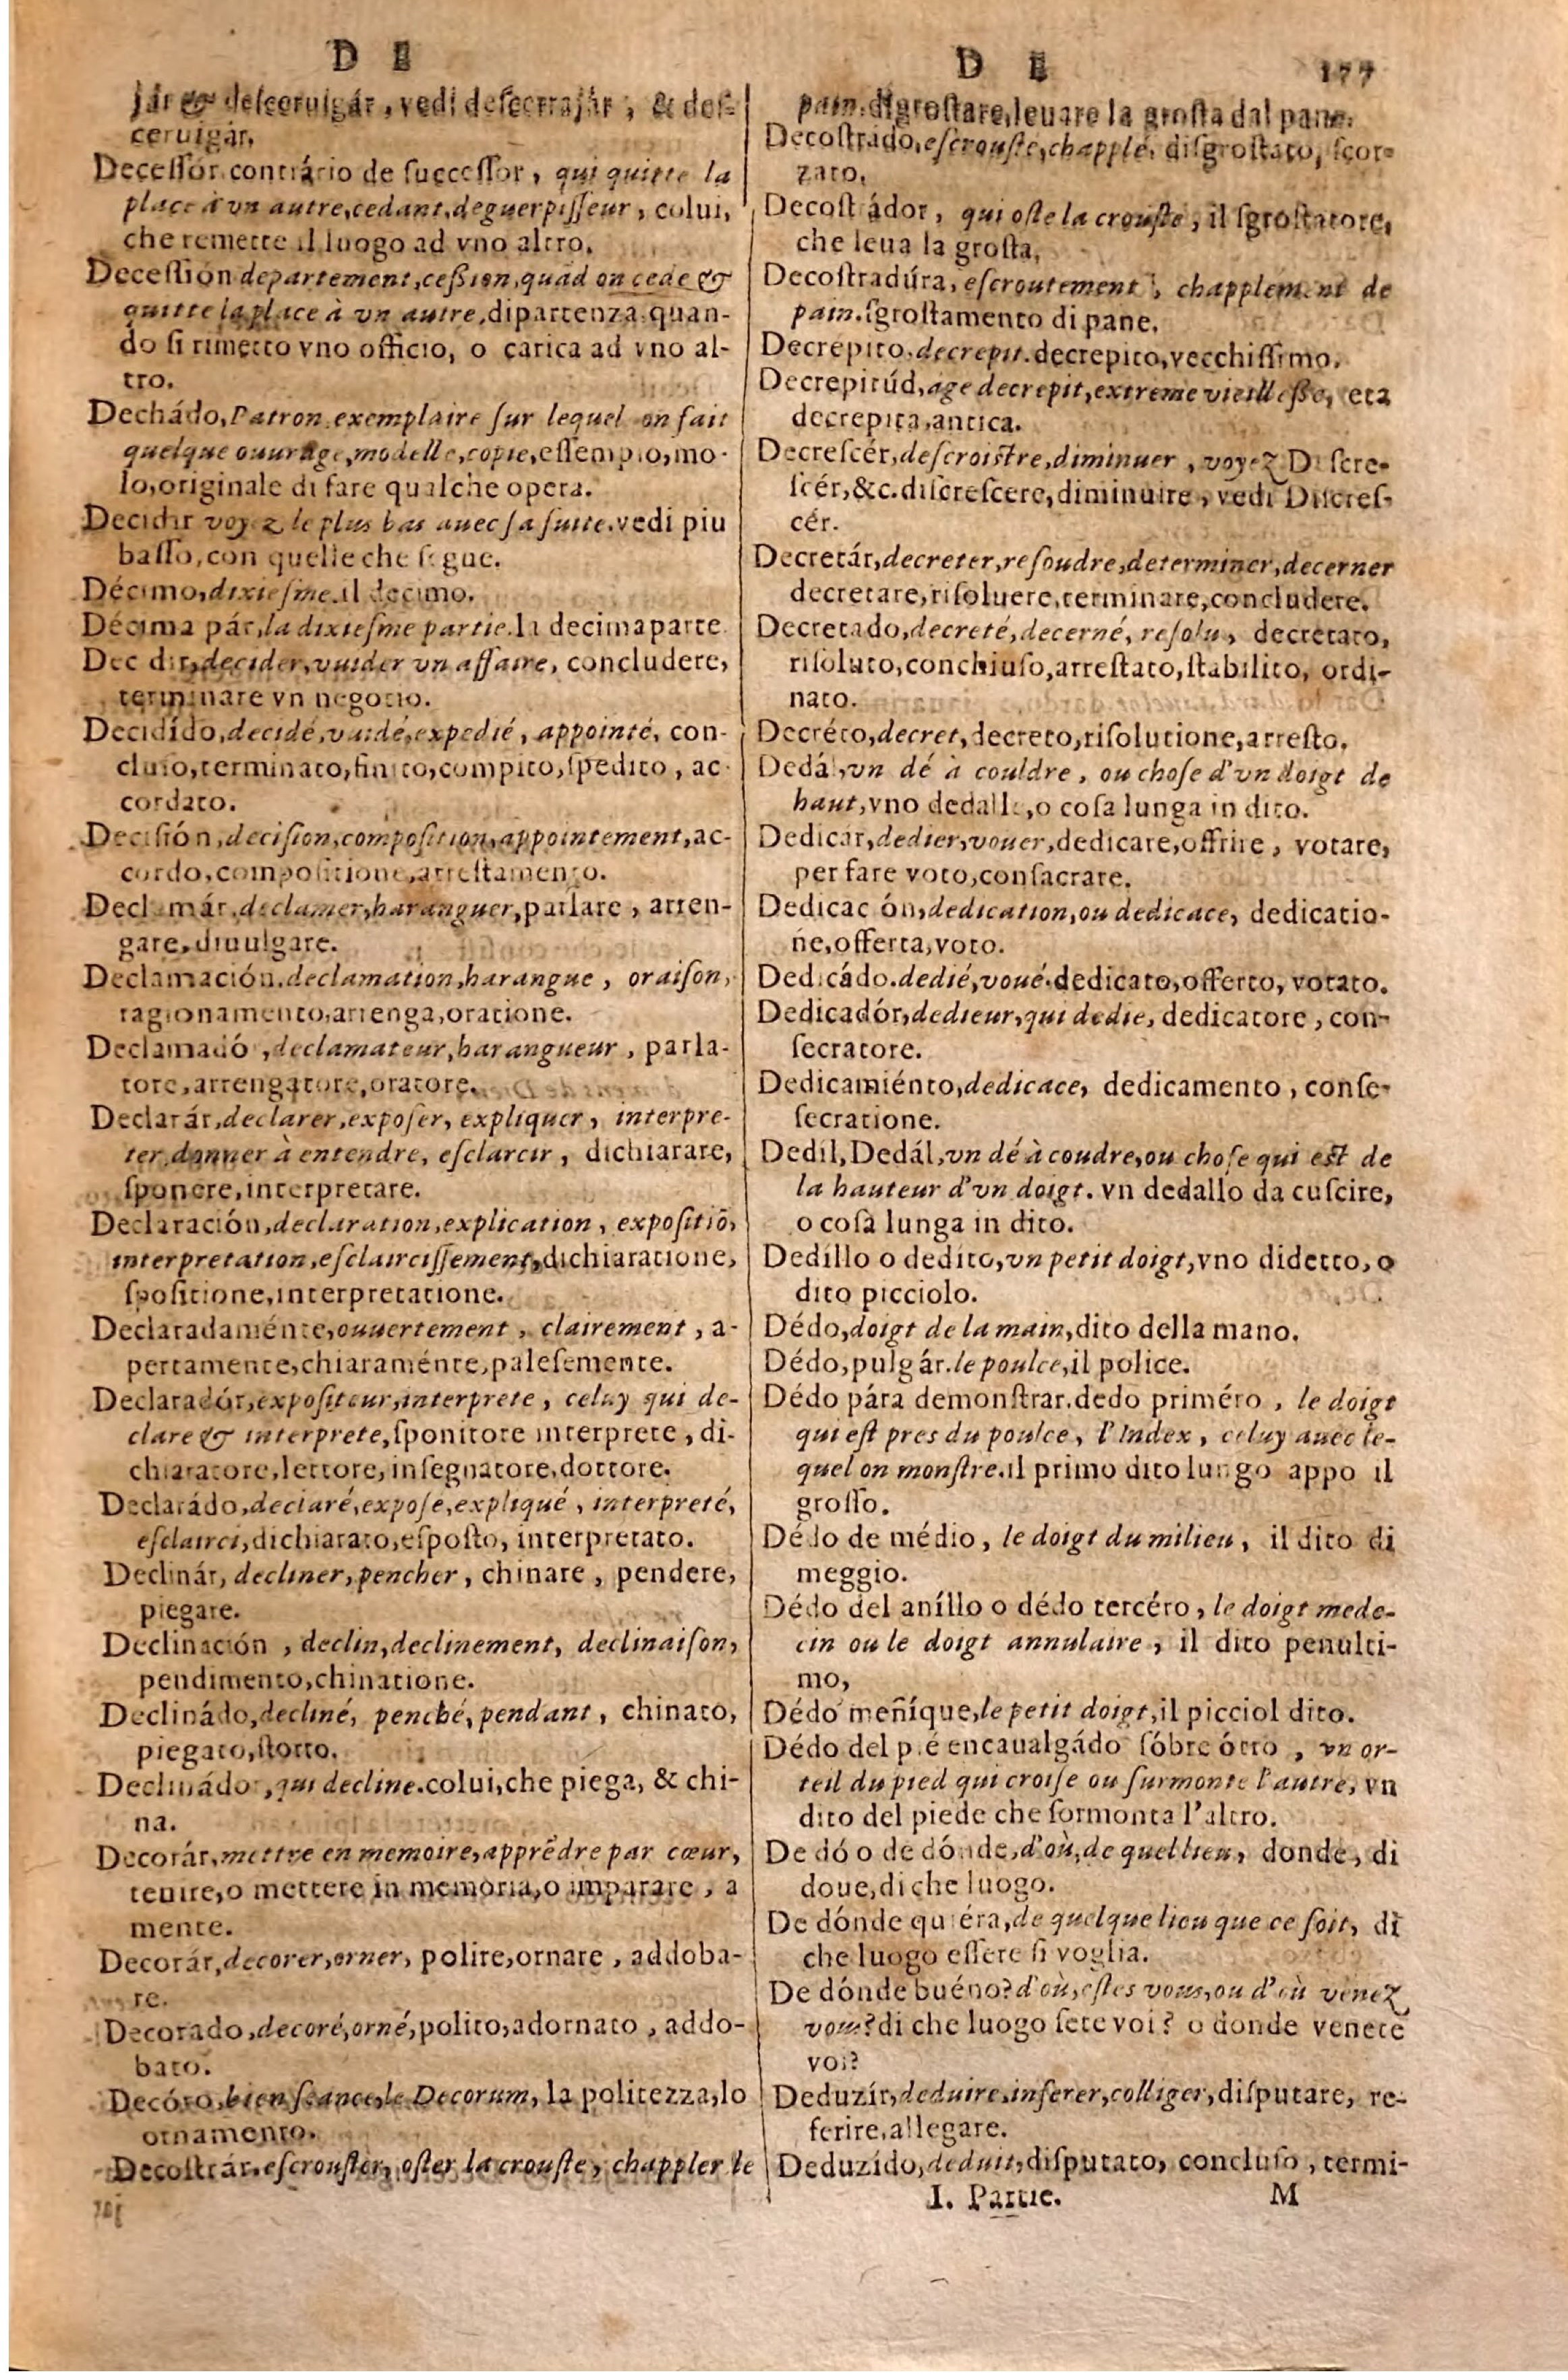 D E
jár & desceruigár, vedi descerrajár, & des-
ceruigár.
Decessór contrário de successor, qui quitte la
place à vn autre, cedant, deguerpisseur, colui,
che remette il luogo ad vno altro.
Decessión departement, cession, quãd on cede &
quitte la place à vn autre, dipartenza quan-
do si rimetto vno officio, o carica ad vno al-
tro.
Dechádo, Patron exemplaire sur lequel on fait
quelque ouurage, modelle, copie, essempio, mo-
lo, originale di fare qualche opera.
Decidir voyez le plus bas auec sa suite. vedi piu
basso, con quelle che segue.
Décimo, dixiesme. il decimo.
Décima pár, la dixiesme partie. la decima parte
Dec dir, decider, vuider vn affaire, concludere,
terminare vn negotio.
Decidído, decidé, vuidé, expedié, appointé, con-
cluso, terminato, finito, compito, spedito, ac-
cordato.
Decisión, decision, composition, appointement, ac-
cordo, compositione, arrestamento.
Declamár, declamer, haranguer, parlare, arren-
gare, diuulgare.
Declamación, declamation, harangue, oraison,
ragionamento, arrenga, oratione.
Declamadó , declamateur, harangueur, parla-
tore, arrengatore, oratore.
Declarár, declarer, exposer, expliquer, interpre-
ter, donner à entendre, esclarcir, dichiarare,
sponere, interpretare.
Declaración, declaration, explication, expositiõ,
interpretation, esclaircissement, dichiaratione,
spositione, interpretatione.
Declaradaménte, ouuertement, clairement, a-
pertamente, chiaraménte, palesemente.
Declaradór, expositeur, interprete, celuy qui de-
clare & interprete, sponitore interprete, di-
chiaratore, lettore, insegnatore, dottore.
Declarádo, declaré, expose, expliqué, interpreté,
esclairci, dichiarato, esposto, interpretato.
Declinár, decliner, pencher, chinare, pendere,
piegare.
Declinación, declin, declinement, declinaison,
pendimento, chinatione.
Declinádo, decliné, penché, pendant, chinato,
piegato, storto.
Declinádor, qui decline. colui, che piega, & chi-
na.
Decorár, mettre en memoire, apprẽdre par cœur,
tenire, o mettere in memoria, o imparare, a
mente.
Decorár, decorer, orner, polire, ornare, addoba-
re.
Decorado, decoré, orné, polito, adornato, addo-
bato.
Decóro, bien seance, le Decorum, la politezza, lo
ornamento.
Decostrár, escrouster, oster la crouste, chappler le
D E 177
pain. digrostare, leuare la grosta dal pane.
Decostrado, escrousté, chapplé, disgrostato, scor-
zato.
Decostrádor, qui oste la crouste, il sgrostatore,
che leua la grosta.
Decostradúra, escroutement, chapplement de
pain. sgrostamento di pane.
Decrépito. decrepit. decrepito, vecchissimo.
Decrepitúd, age decrepit, extreme vieillesse, eta
decrepita, antica.
Decrescér, descroistre, diminuer, voyez Discre-
scér, &c. discrescere, diminuire, vedi Discres-
cér.
Decretár, decreter, resoudre, determiner, decerner
decretare, risoluere, terminare, concludere.
Decretado, decreté, decerné, resolu, decretato,
risoluto, conchiuso, arrestato, stabilito, ordi-
nato.
Decréto, decret, decreto, risolutione, arresto.
Dedál, vn dé à couldre, ou chose d'vn doigt de
haut, vno dedalle, o cosa lunga in dito.
Dedicár, dedier, vouer, dedicare, offrire, votare,
per fare voto, consacrare.
Dedicac ón, dedication, ou dedicace, dedicatio-
ne, offerta, voto.
Dedicádo. dedié, voué. dedicato, offerto, votato.
Dedicadór, dedieur, qui dedie, dedicatore, con-
secratore.
Dedicamiénto, dedicace, dedicamento, conse-
secratione.
Dedíl, Dedál, vn dé à coudre, ou chose qui est de
la hauteur d'vn doigt. vn dedallo da cuscire,
o cosa lunga in dito.
Dedíllo o dedito, vn petit doigt, vno didetto, o
dito picciolo.
Dédo, doigt de la main, dito della mano.
Dédo, pulgár. le poulce, il police.
Dédo pára demonstrar. dedo priméro, le doigt
qui est pres du poulce, l'Index, celuy auec le-
quel on monstre. il primo dito lungo appo il
grosso.
Dédo de médio, le doigt du milieu, il dito di
meggio.
Dédo del aníllo o dédo tercéro, le doigt mede-
cin ou le doigt annulaire, il dito penulti-
mo,
Dédo meñíque, le petit doigt, il picciol dito.
Dédo del pié encaualgádo sóbre ótro, vn or-
teil du pied qui croise ou surmonte l'autre, vn
dito del piede che sormonta l'altro.
De dó o de dónde, d'où, de quel lieu, donde, di
doue, di che luogo.
De dónde quiéra, de quelque lieu que ce soit, di
che luogo essere si voglia.
De dónde buéno? d'où, estes vous, ou d'où venez
vous? di che luogo sete voi? o donde venete
voi?
Deduzír, deduire, inferer, colliger, disputare, re-
ferire, allegare.
Deduzído, deduit, disputato, concluso, termi-
I. Partie. M